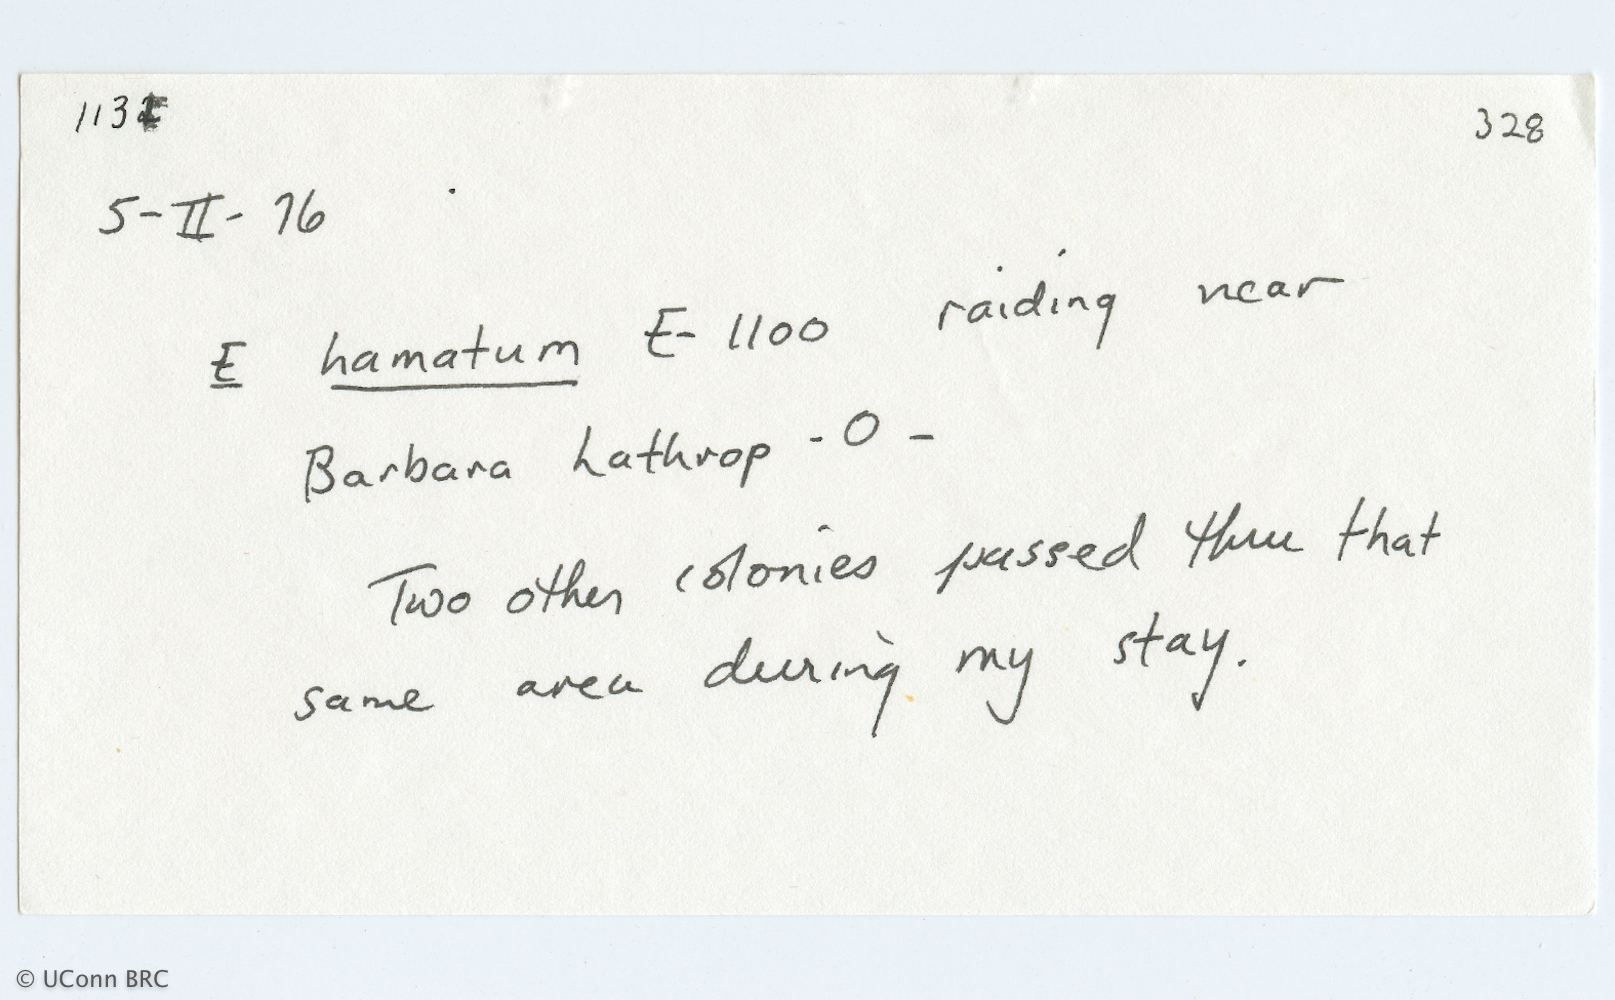 113
328
5-II-76
E hamatum E-1100 raiding near
Barbara Lathrop -0-
Two other colonies passed thru that
same area during my stay.
© UConn BRC